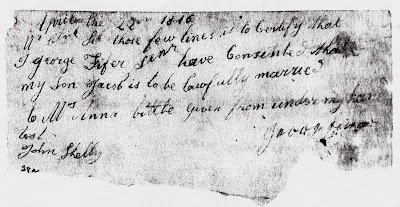 April the 22nd 1816
Sir those few lines is to Certify that
I george Fifer Senr have Consented that
my Son Jacob is to be lawfully married
to Mrs Anna bittle Given from under my han
test
George Fifer
John Shelly